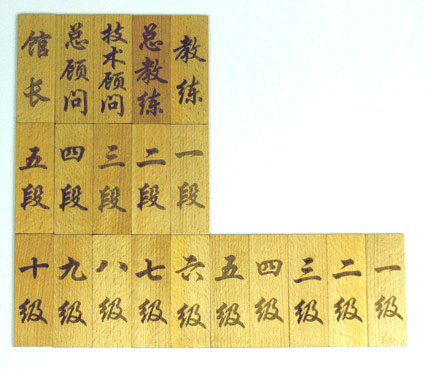 馆长 总顾问 技术顾问 总教练 教练
五段 四段 三段 二段 一段
十级 九级 八级 七级 六级 五级 四级 三级 二级 一级